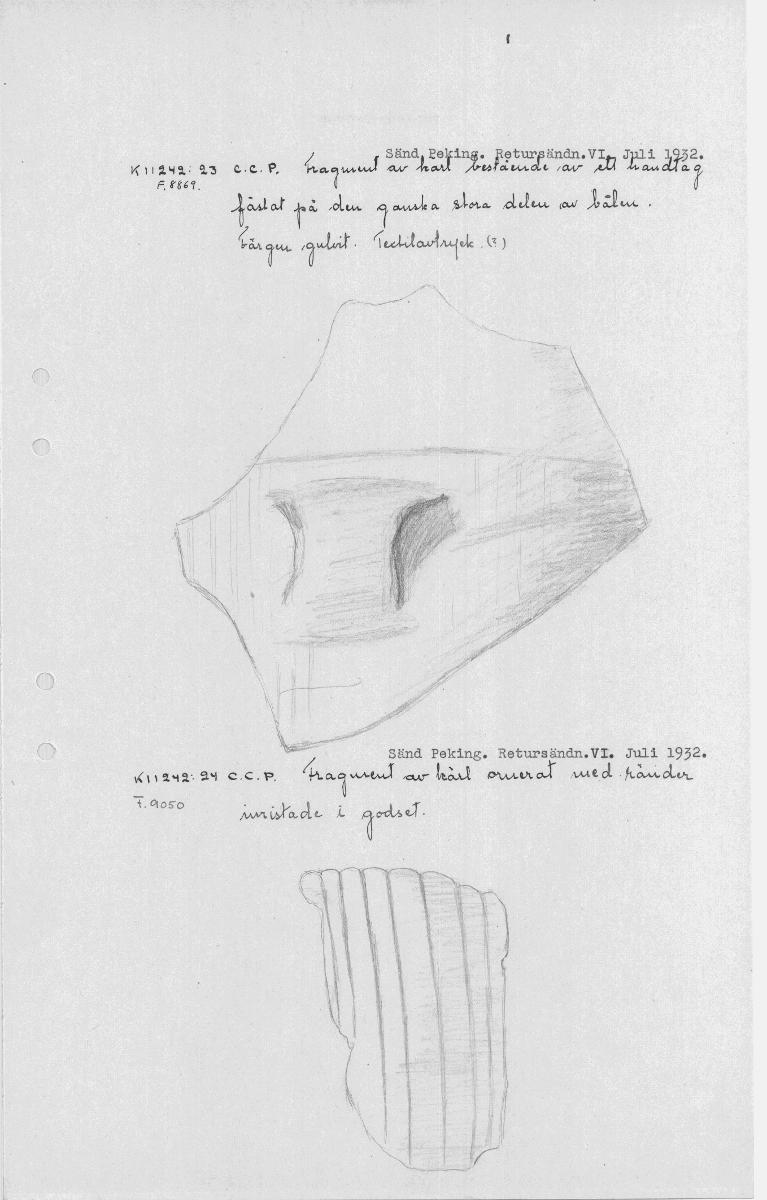 Sänd Peking. Retursändn.VI. Juli 1932.
K11242:23 C.C.P. Fragment av kärl bestående av ett handtag
F.8869.
fästat på den ganska stora delen av bålen.
Färgen gulvit. Textilavtryck (?)
Sänd Peking. Retursändn.VI. Juli 1932.
K11242:24 C.C.P. Fragment av kärl ornerat med ränder
F.9050
inristade i godset.